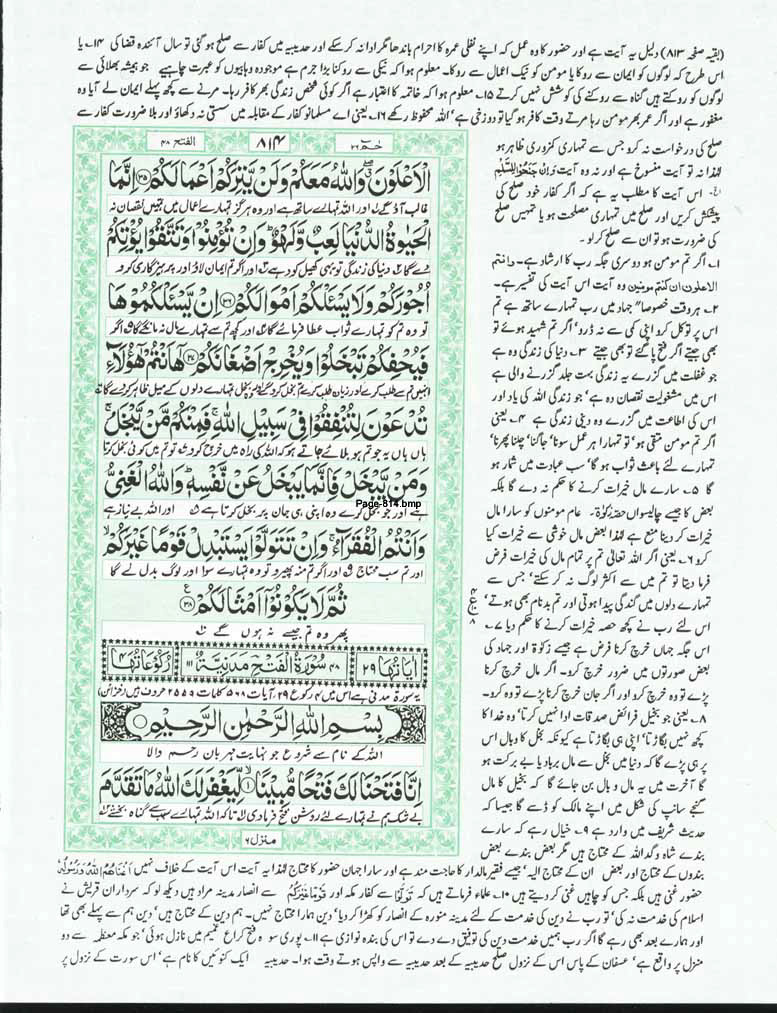 (بقیہ صفحہ ۸۱۳) دلیل یہ آیت ہے اور حضور کا وہ عمل کہ اپنے نفلی عمرہ کا احرام باندھا مگر ادا نہ کر سکے اور حدیبیہ میں کفار سے صلح ہو گئی تو سال آئندہ قضا کی ۱۴۔ یا
اس طرح کہ لوگوں کو ایمان سے روکا یا مومن کو نیک اعمال سے روکا۔ معلوم ہوا کہ نیکی سے روکنا بڑا جرم ہے موجودہ وہابیوں کو عبرت چاہیے جو ہمیشہ بھلائی سے
لوگوں کو روکتے ہیں گناہ سے روکنے کی کوشش نہیں کرتے ۱۵۔ معلوم ہوا کہ خاتمہ کا اعتبار ہے اگر کوئی شخص زندگی بھر کافر رہا۔ مرنے سے کچھ پہلے ایمان لے آیا وہ
مغفور ہے اور اگر عمر بھر مومن رہا مرتے وقت کافر ہو گیا تو دوزخی ہے' اللہ محفوظ رکھے ۱۶۔ یعنی اے مسلمانو کفار کے مقابلہ میں سستی نہ دکھاؤ اور بلا ضرورت کفار سے
الفتح ۴۸
۸۱۴
حٰمٓ ۲۶
الْاَعْلَوْنَ ۖ وَاللّٰهُ مَعَكُمْ وَلَنْ يَّتِرَكُمْ اَعْمَالَكُمْ ﴿۳۵﴾ اِنَّمَا
غالب آؤ گے اور اللہ تمہارے ساتھ ہے اور وہ ہرگز تمہارے اعمال میں تمہیں نقصان نہ
الْحَيٰوةُ الدُّنْيَا لَعِبٌ وَّلَهْوٌ ؕ وَاِنْ تُؤْمِنُوْا وَتَتَّقُوْا يُؤْتِكُمْ
دے گا دنیا کی زندگی تو یہی کھیل کود ہے اور اگر تم ایمان لاؤ اور پرہیزگاری کرو
اُجُوْرَكُمْ وَلَا يَسْـَٔلْكُمْ اَمْوَالَكُمْ ﴿۳۶﴾ اِنْ يَّسْـَٔلْكُمُوْهَا
تو وہ تم کو تمہارے ثواب عطا فرمائے گا اور کچھ تم سے تمہارے مال نہ مانگے گا اگر
فَيُحْفِكُمْ تَبْخَلُوْا وَيُخْرِجْ اَضْغَانَكُمْ ﴿۳۷﴾ هٰٓاَنْتُمْ هٰٓؤُلَآءِ
انہیں تم سے طلب کرے اور زیادہ طلب کرے تم بخل کرو گے اور وہ بخل تمہارے دلوں کے میل ظاہر کر دے گا
تُدْعَوْنَ لِتُنْفِقُوْا فِيْ سَبِيْلِ اللّٰهِ ۚ فَمِنْكُمْ مَّنْ يَّبْخَلُ ۚ
ہاں ہاں یہ جو تم ہو بلائے جاتے ہو کہ اللہ کی راہ میں خرچ کرو تو تم میں کوئی بخل کرتا
وَمَنْ يَّبْخَلْ فَاِنَّمَا يَبْخَلُ عَنْ نَّفْسِهٖ ؕ وَاللّٰهُ الْغَنِيُّ
Page-814.bmp
ہے اور جو بخل کرے وہ اپنی ہی جان پر بخل کرتا ہے اور اللہ بے نیاز ہے
وَاَنْتُمُ الْفُقَرَآءُ ۚ وَاِنْ تَتَوَلَّوْا يَسْتَبْدِلْ قَوْمًا غَيْرَكُمْ ۙ
اور تم سب محتاج اور اگر تم منہ پھیرو تو وہ تمہارے سوا اور لوگ بدل لے گا
ثُمَّ لَا يَكُوْنُوْٓا اَمْثَالَكُمْ ﴿۳۸﴾
پھر وہ تم جیسے نہ ہوں گے
اٰيَاتُهَا ۲۹ ۴۸ سُوْرَةُ الْفَتْحِ مَدَنِيَّةٌ ۱۱۱ رُكُوْعَاتُهَا ۴
یہ سورۃ مدنی ہے اس میں ۴ رکوع ۲۹ آیات ۵۶۸ کلمات ۲۵۵۹ حروف ہیں (خزائن)
بِسْمِ اللّٰهِ الرَّحْمٰنِ الرَّحِيْمِ
اللہ کے نام سے شروع جو نہایت مہربان رحم والا
اِنَّا فَتَحْنَا لَكَ فَتْحًا مُّبِيْنًا ﴿۱﴾ لِّيَغْفِرَ لَكَ اللّٰهُ مَا تَقَدَّمَ
بے شک ہم نے تمہارے لئے روشن فتح فرما دی تاکہ اللہ تمہارے سبب سے گناہ بخشے
منزل ۶
صلح کی درخواست نہ کرو جس سے تمہاری کمزوری ظاہر ہو
لہٰذا نہ تو آیت منسوخ ہے اور نہ وہ آیت وَاِنْ جَنَحُوْا لِلسَّلْمِ
الخ۔ اس آیت کا مطلب یہ ہے کہ اگر کفار خود صلح کی
پیشکش کریں اور صلح میں تمہاری مصلحت ہو یا تمہیں صلح
کی ضرورت ہو تو ان سے صلح کر لو۔
۱۔ اگر تم مومن ہو دوسری جگہ رب کا ارشاد ہے۔ وانتم
الاعلون ان کنتم مومنین وہ آیت اس آیت کی تفسیر ہے۔
۲۔ ہر وقت خصوصاً" جہاد میں رب تمہارے ساتھ ہے تم
اس پر توکل کرو اپنی کمی سے نہ ڈرو' اگر تم شہید ہوئے تو
بھی جیتے اگر فتح پا گئے تو بھی جیتے ۳۔ دنیا کی زندگی وہ ہے
جو غفلت میں گزرے یہ زندگی بہت جلد گزرنے والی ہے
اس میں مشغولیت نقصان دہ ہے' جو زندگی اللہ کی یاد اور
اس کی اطاعت میں گزرے وہ دینی زندگی ہے ۴۔ یعنی
اگر تم مومن متقی ہو' تو تمہارا ہر عمل سونا' جاگنا' چلنا پھرنا'
تمہارے لئے باعث ثواب ہو گا' سب عبادت میں شمار ہو
گا ۵۔ سارے مال خیرات کرنے کا حکم نہ دے گا بلکہ
بعض کا جیسے چالیسواں حصہ زکوٰۃ۔ عام مومنوں کو سارا مال
خیرات کر دینا منع ہے لہٰذا بعض مال خوشی سے خیرات کیا
کرو ۶۔ یعنی اگر اللہ تعالیٰ تم پر تمام مال کی خیرات فرض
فرما دیتا تو تم میں سے اکثر لوگ نہ کر سکتے' جس سے
تمہارے دلوں میں گندگی پیدا ہوتی اور تم بدنام بھی ہوتے'
اس لئے رب نے کچھ حصہ خیرات کرنے کا حکم دیا ۷۔
اس جگہ جہاں خرچ کرنا فرض ہے جیسے زکوٰۃ اور جہاد کی
بعض صورتوں میں ضرور خرچ کرو۔ اگر مال خرچ کرنا
پڑے تو وہ خرچ کرو اور اگر جان خرچ کرنا پڑے تو وہ کرو۔
۸۔ یعنی جو بخیل فرائض صدقات ادا نہیں کرتا' وہ خدا کا
کچھ نہیں بگاڑتا' اپنی ہی بگاڑتا ہے کیونکہ بخل کا وبال اس
پر ہی پڑے گا کہ دنیا میں بخل سے مال برباد یا بے برکت ہو
گا آخرت میں یہ مال وبال بن جائے گا کہ بخیل کا مال
گنجے سانپ کی شکل میں اپنے مالک کو ڈسے گا جیسا کہ
حدیث شریف میں وارد ہے ۹۔ خیال رہے کہ سارے
بندے شاہ و گدا اللہ کے محتاج ہیں مگر بعض بندے بعض
بندوں کے محتاج اور بعض ان کے محتاج الیہ' جیسے فقیر مالدار کا حاجت مند ہے اور سارا جہان حضور کا محتاج لہٰذا یہ آیت اس آیت کے خلاف نہیں اَغْنَاهُمُ اللّٰهُ وَرَسُوْلُهٗ
حضور غنی ہیں بلکہ جس کو چاہیں غنی کر دیتے ہیں ۱۰۔ علماء فرماتے ہیں کہ تَوَلَّوْا سے کفار مکہ اور قَوْمًا غَيْرَكُمْ سے انصار مدینہ مراد ہیں دیکھ لو کہ سرداران قریش نے
اسلام کی خدمت نہ کی' تو رب نے دین کی خدمت کے لئے مدینہ منورہ کے انصار کو کھڑا کر دیا' دین ہمارا محتاج نہیں۔ ہم دین کے محتاج ہیں' دین ہم سے پہلے بھی تھا
اور ہمارے بعد بھی رہے گا اگر رب ہمیں خدمت دین کی توفیق دے دے تو اس کی بندہ نوازی ہے ۱۱۔ پوری سورہ فتح کراع غمیم میں نازل ہوئی' جو مکہ معظمہ سے دو
منزل پر واقع ہے' عسفان کے پاس اس کے نزول صلح حدیبیہ کے بعد حدیبیہ سے واپس ہوتے وقت ہوا۔ حدیبیہ ایک کنوئیں کا نام ہے' اس سورت کے نزول پر